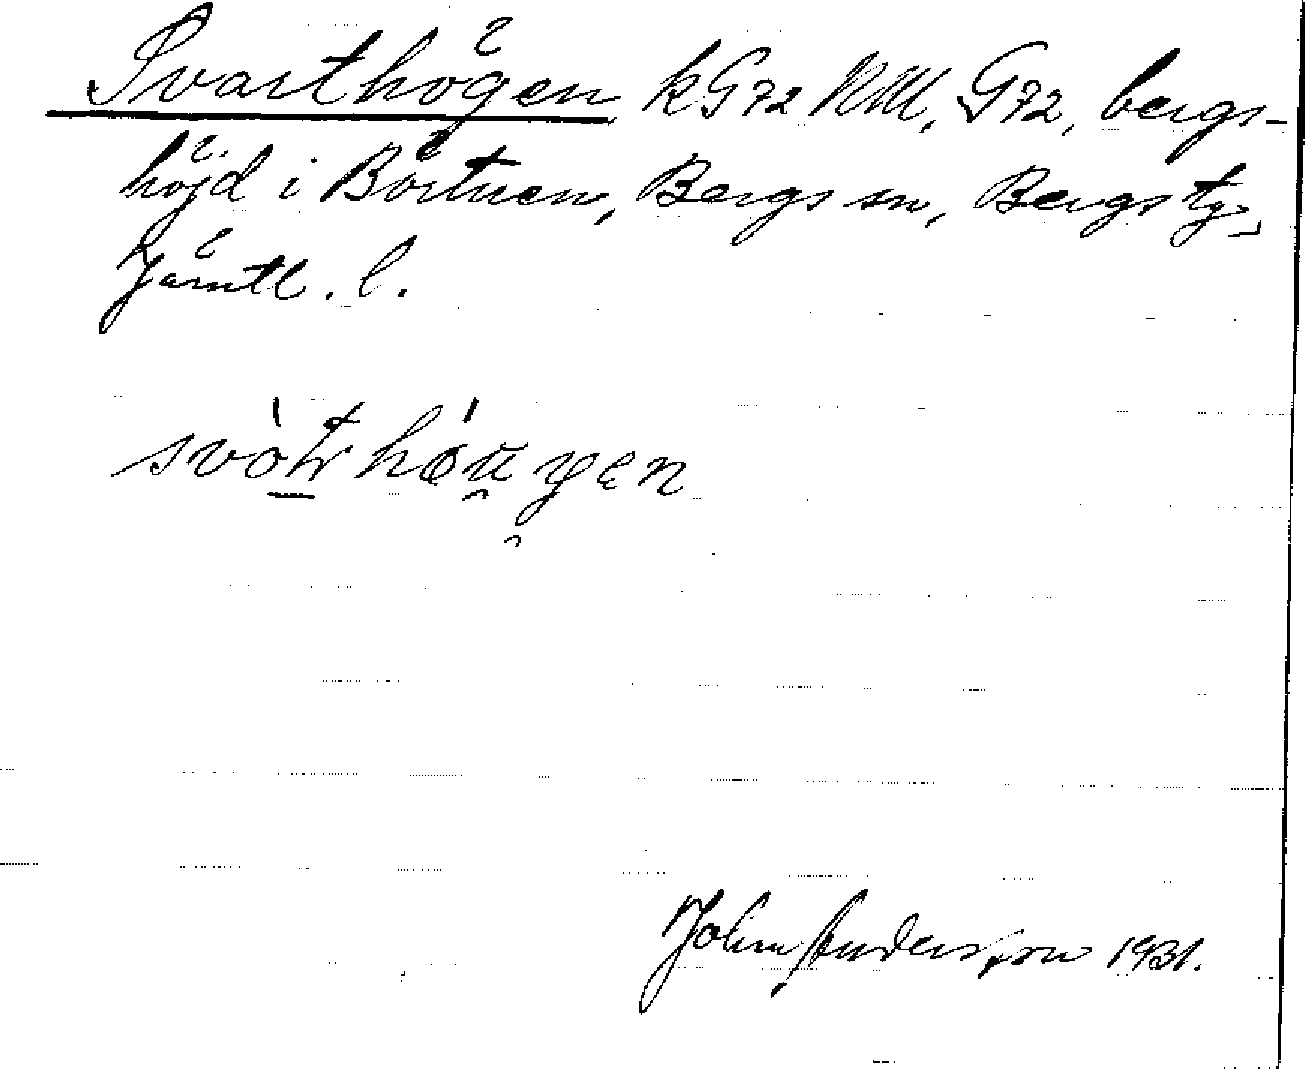 Svarthögen kG72 NM, G72, bergs-
höjd i Börtnen, Bergs sn, Bergs tg,
Jämtl. l.
svòt hóu̯gen
John Andersson 1931.